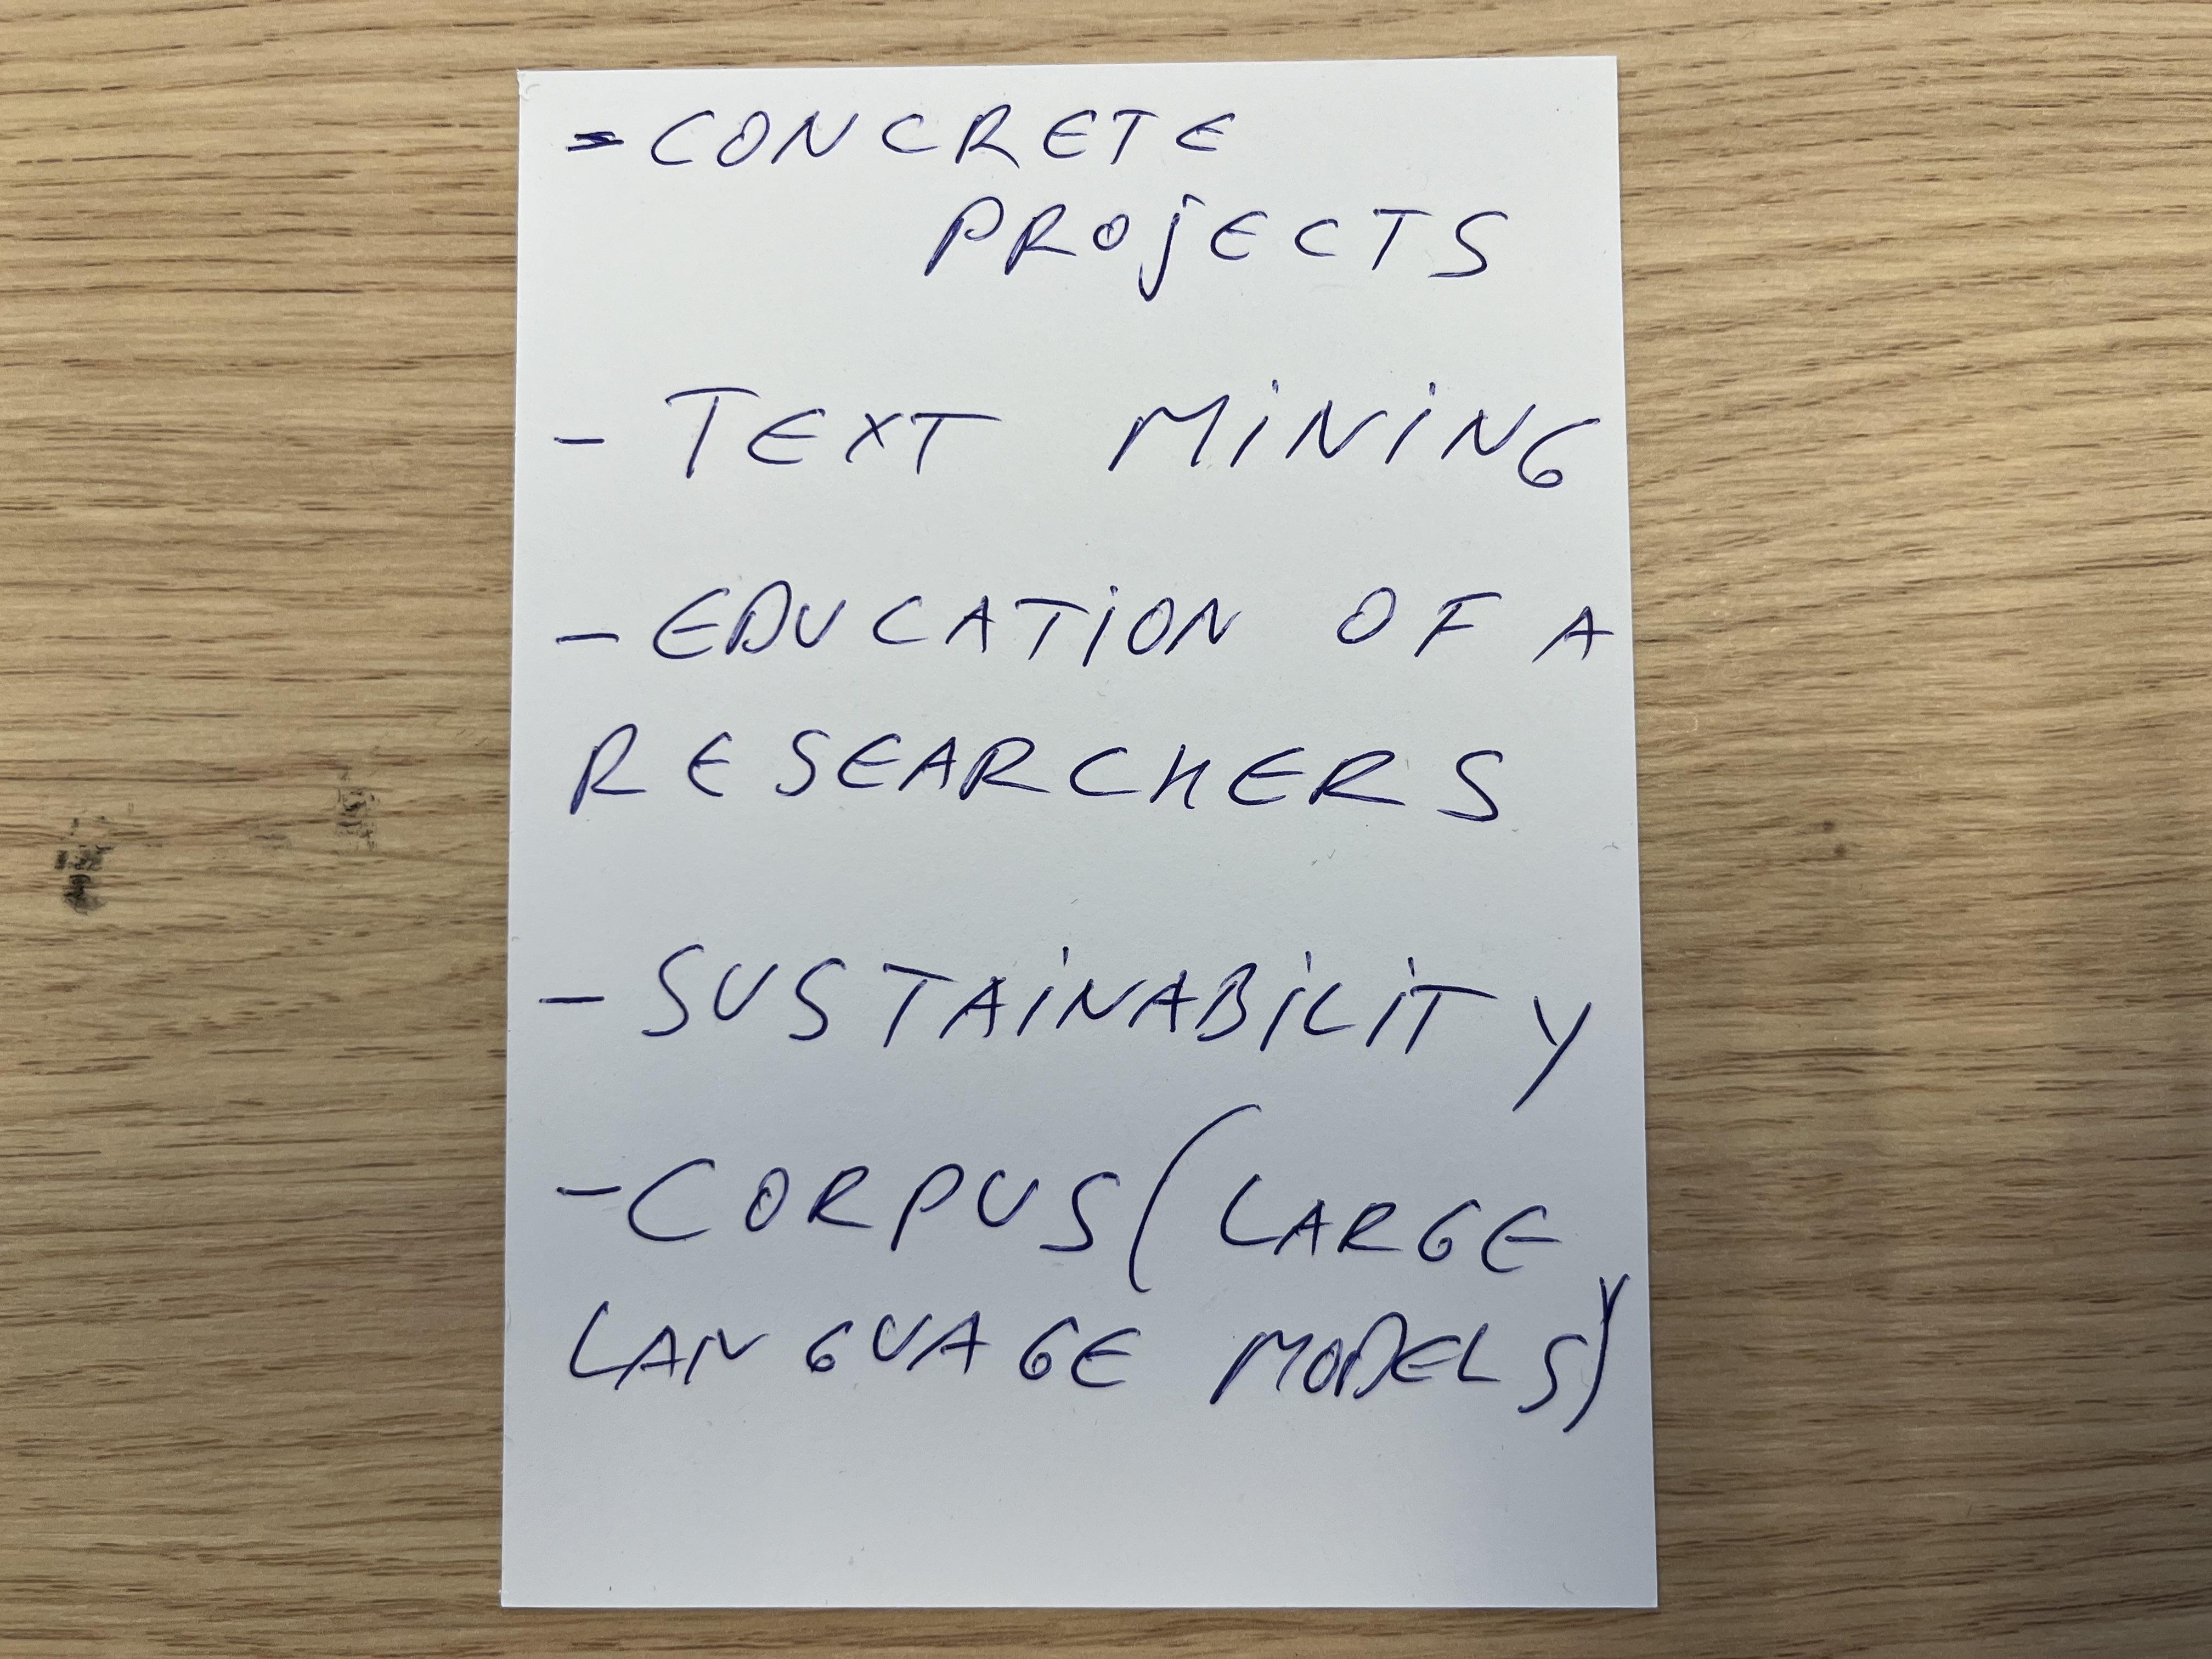 - CONCRETE
PROjECTS
- TEXT MiNiNG
- EDUCATiON OF A
RESEARCHERS
- SUSTAiNABiLiTY
- CORPUS (LARGE
LANGUAGE MODELS)